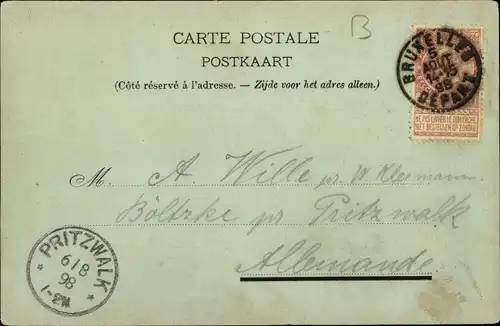 B
CARTE POSTALE
POSTKAART
(Côté réservé à l'adresse. — Zijde voor het adres alleen.)
BRUXELLES
5
AOUT
98
DEPART
NE PAS LIVRER LE DIMANCHE
NIET BESTELLEN OP ZONDAG
M. A. Wille pr. W. Kleemann
Böltzke pr Pritzwalk
Allemande
PRITZWALK
6/8
98
1-2N